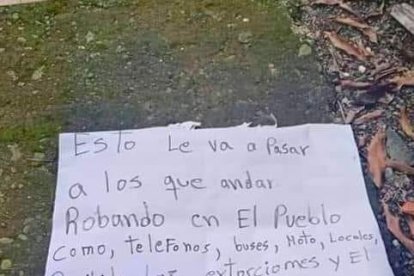 Esto Le va a Pasar
a los que andar
Robando en El Pueblo
como, telefonos, buses, Moto, Locales,
extorciones y El